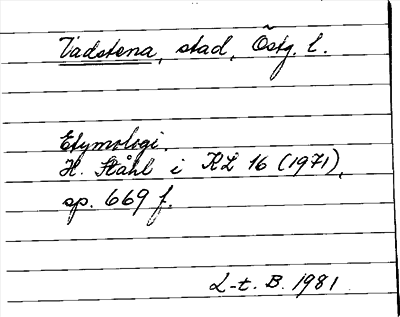 Vadstena, stad, Östg. l.
Etymologi.
H. Ståhl i KL 16 (1971),
sp. 669 f.
L-t. B. 1981